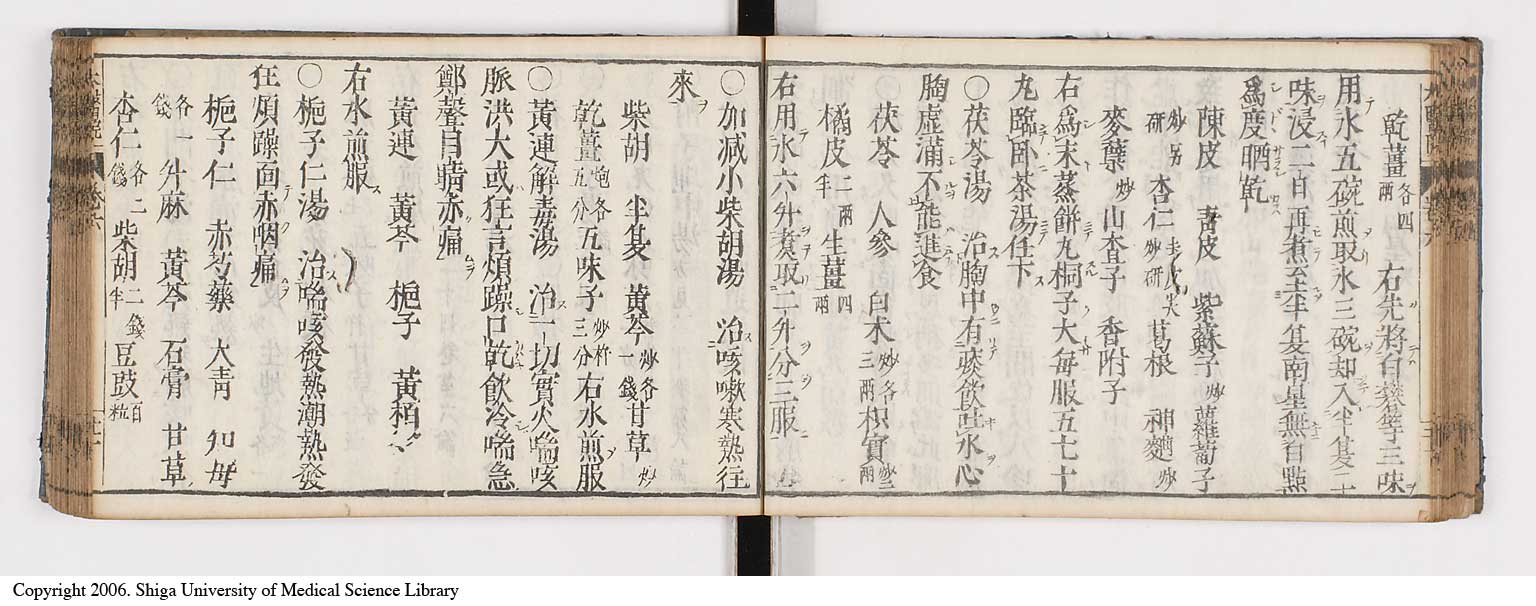 乾薑各四兩　右先將白礬等三味
用水五碗煎取水三碗却入半夏二十
味浸二日再煮至半夏南星無白點
爲度晒乾
陳皮　青皮　紫蘇子炒蘿蔔子
炒另研　杏仁去皮尖炒研　葛根　神麯炒
麥蘗炒山查子　香附子
右爲末蒸餅丸桐子大每服五七十
丸臨卧茶湯任下
〇茯苓湯　治胸中有痰飲吐水心
胸虛滿不能進食
茯苓久　人參　白朮炒各三兩枳實炒二兩
橘皮二兩半生薑四兩
右用水六升煮取二升分三服
〇加減小柴胡湯　治咳嗽寒熱往
來
柴胡　半夏　黃芩炒各一錢甘草炒
乾薑炮各五分五味子炒杵三分右水煎服
〇黃連解毒湯　治一切實火喘咳
脈洪大或狂言煩躁口乾飲冷喘急
鄭聲目睛赤痛
黃連　黃芩　梔子　黃栢
右水煎服
〇梔子仁湯　治喘咳發熱潮熱發
狂煩躁面赤咽痛
梔子仁　赤芍藥　大青　知母
各一錢升麻　黃芩　石膏　甘草
杏仁各二錢　柴胡二錢半豆豉百粒
Copyright 2006. Shiga University of Medical Science Library